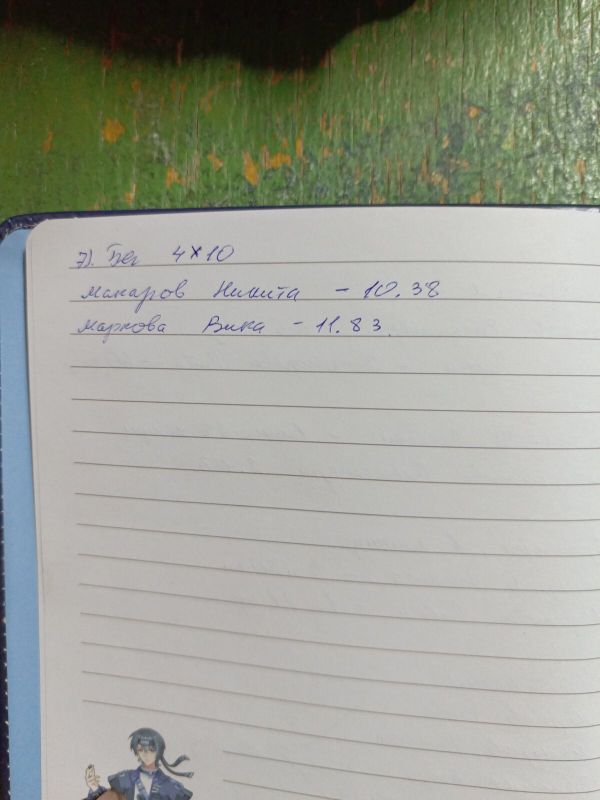 7). Бег 4×10
Макаров Никита - 10.38
Маркова Вика - 11.83